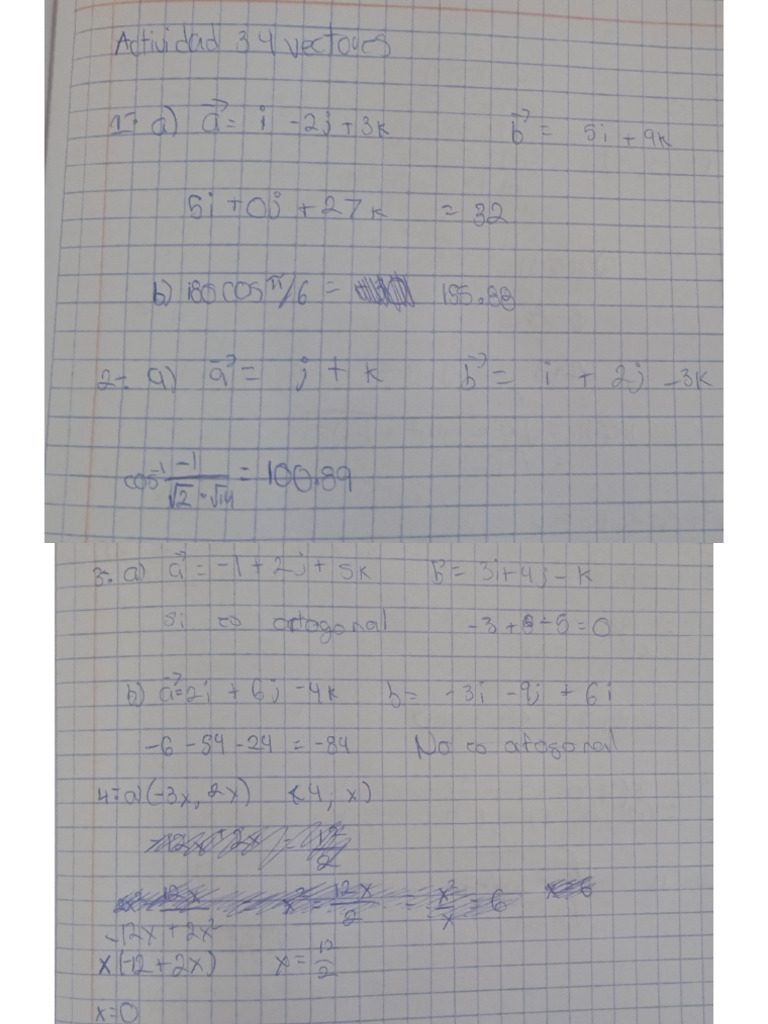 Actividad 3.4 vectores
1- a) a⃗ = i - 2j + 3k b⃗ = 5i + 9k
5i + 0j + 27k = 32
b) 180 cos π/6 = 155.88
2- a) a⃗ = j + k b⃗ = i + 2j - 3k
cos⁻¹ -1/(√2 · √14) = 100.89
3- a) a⃗ = -1 + 2j + 5k b⃗ = 3i + 4j - k
si es ortogonal -3 + 8 - 5 = 0
b) a⃗ = 2i + 6j - 4k b = -3i - 9j + 6i
-6 - 54 - 24 = -84 No es otogonal
4- a) (-3x, 2x) <4, x)
-12x + 2x²
x(-12 + 2x) x = 12/2
x = 0